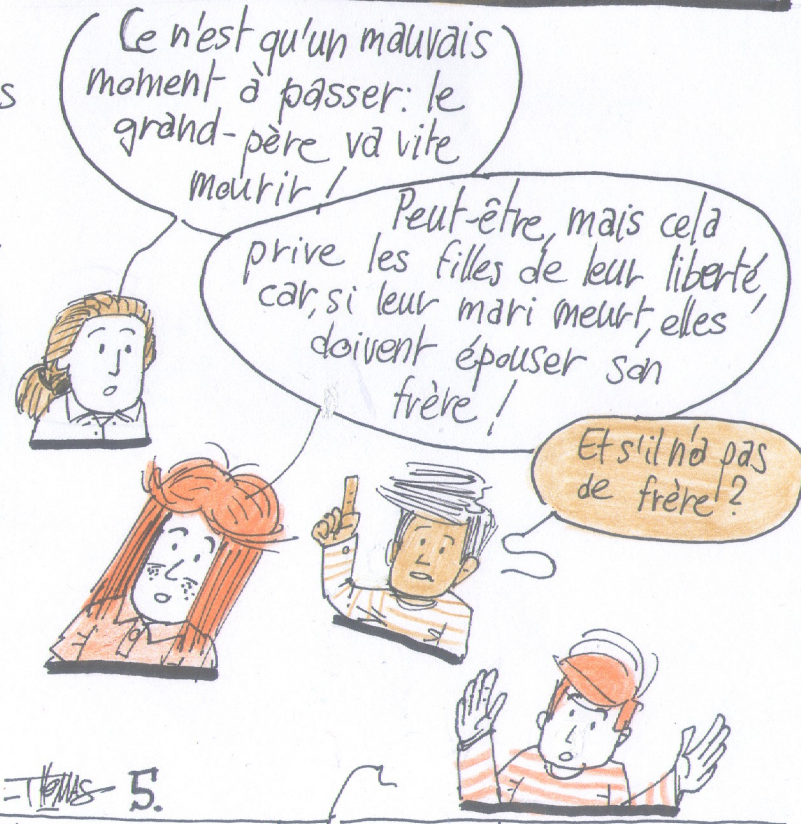 s
Ce n'est qu'un mauvais
moment à passer: le
grand-père va vite
mourir !
Peut-être, mais cela
prive les filles de leur liberté,
car, si leur mari meurt, elles
doivent épouser son
frère !
Et s'il n'a pas
de frère ?
THOMAS 5.